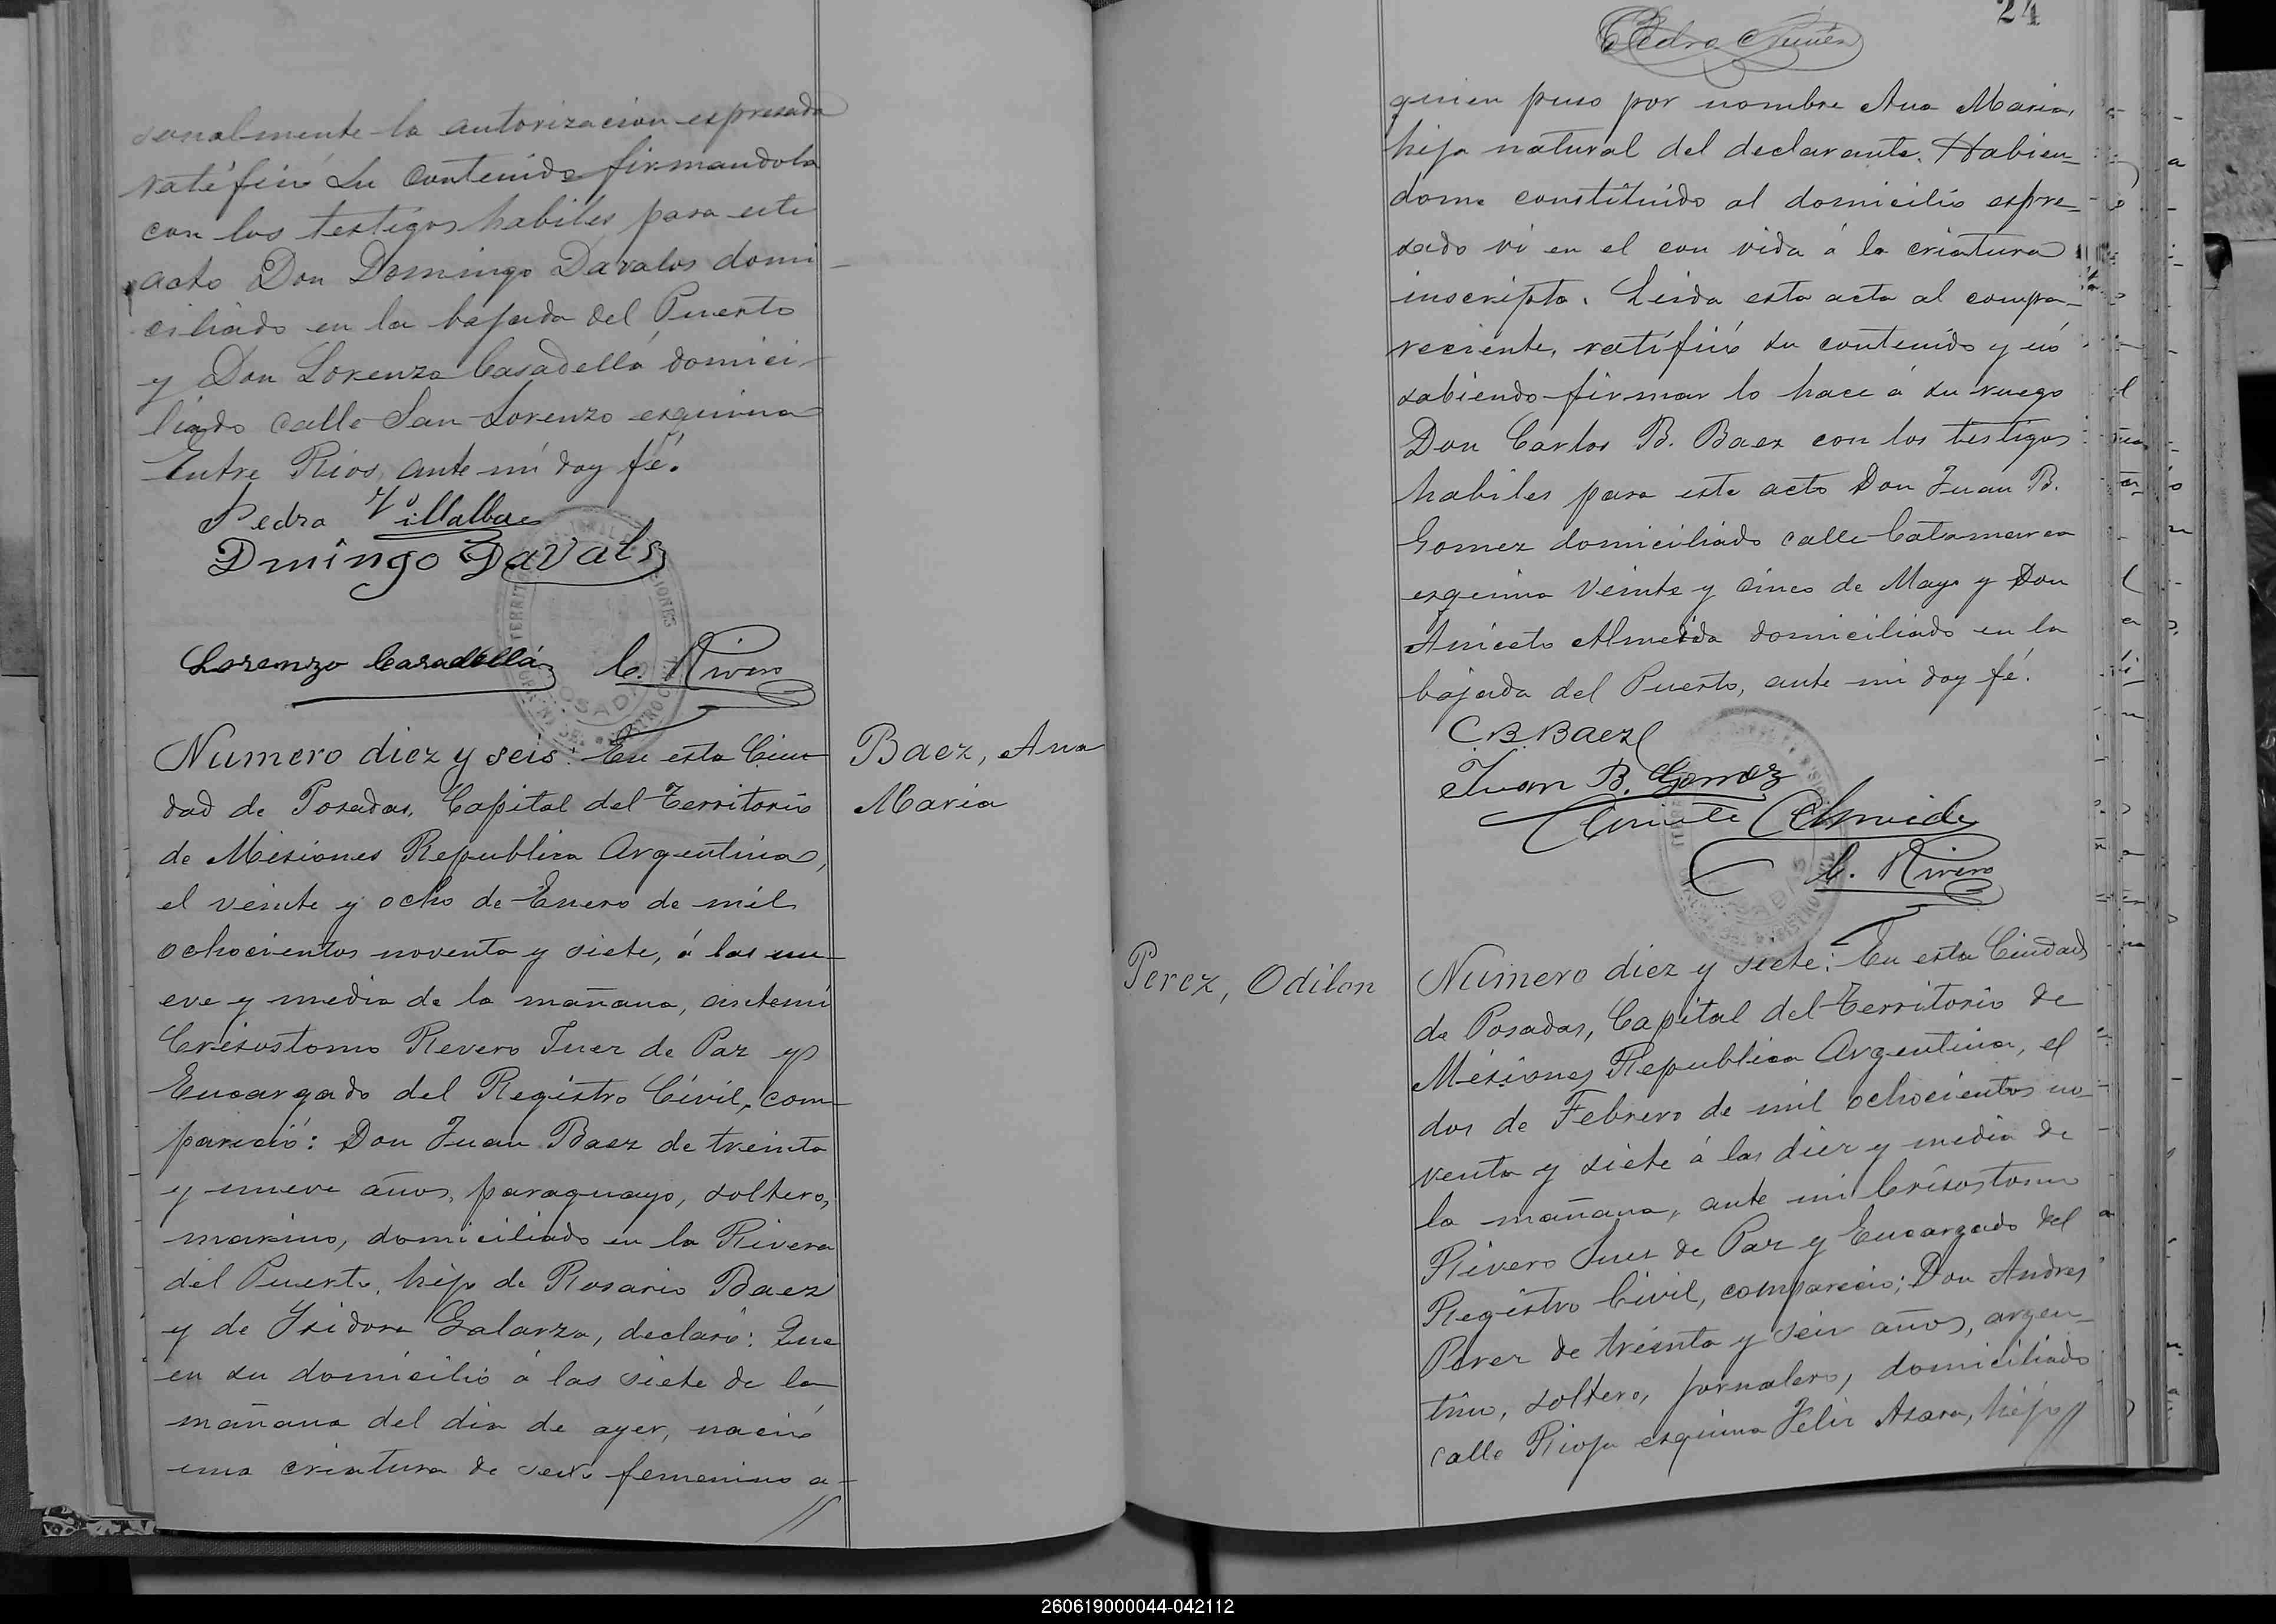 sonalmente la autorizacion espresada
ratifico su contenido firmandola
con los testigos habiles para este
acto Don Domingo Davalos domi-
ciliado en la bajada del Puerto
y Don Lorenzo Casadellá domici-
liado calle San Lorenzo esquina
Entre Rios, ante mi doy fé.
Pedro Villalba
Dmingo Davals
Lorenzo Casadellá C. Rivero
Numero diez y seis: En esta Ciu-
dad de Posadas, Capital del Territorio
de Misiones Republica Argentina,
el veinte y ocho de Enero de mil
ochocientos noventa y siete, á las nu-
eve y media de la mañana, ante mi
Crisostomo Rivero Juez de Paz y
Encargado del Registro Civil, com-
pareció: Don Juan Baez de treinta
y nueve años, paraguayo, soltero,
marino, domiciliado en la Rivera
del Puerto, hijo de Rosario Baez
y de Isidora Galarza, declaró: Que
en su domicilio á las siete de la
mañana del dia de ayer, nació
una criatura de sexo femenino a-
Baez, Ana
Maria
24
Pedro Nuñez
quien puso por nombre Ana Maria,
hija natural del declarante. Habien-
dome constituido al domicilio espre-
sado vi en el con vida á la criatura
inscripta. Leida esta acta al compa-
reciente, ratificó su contenido y nó
sabiendo firmar lo hace á su ruego
Don Carlos B. Baez con los testigos
habiles para este acto Don Juan B.
Gomez domiciliado calle Catamarca
esquina Veinte y Cinco de Mayo y Don
Aniceto Almeida domiciliado en la
bajada del Puerto, ante mi doy fé.
C. B. Baez
Juan B. Gomez
Aniceto Almeida
C. Rivero
Perez, Odilon
Numero diez y siete: En esta Ciudad
de Posadas, Capital del Territorio de
Misiones Republica Argentina, el
dos de Febrero de mil ochocientos no-
venta y siete á las diez y media de
la mañana, ante mi Crisostomo
Rivero Juez de Paz y Encargado del
Registro Civil, compareció; Don Andres
Perez de treinta y seis años, argen-
tino, soltero, jornalero, domiciliado
calle Rioja esquina Felix Azara, hijo
260619000044-042112